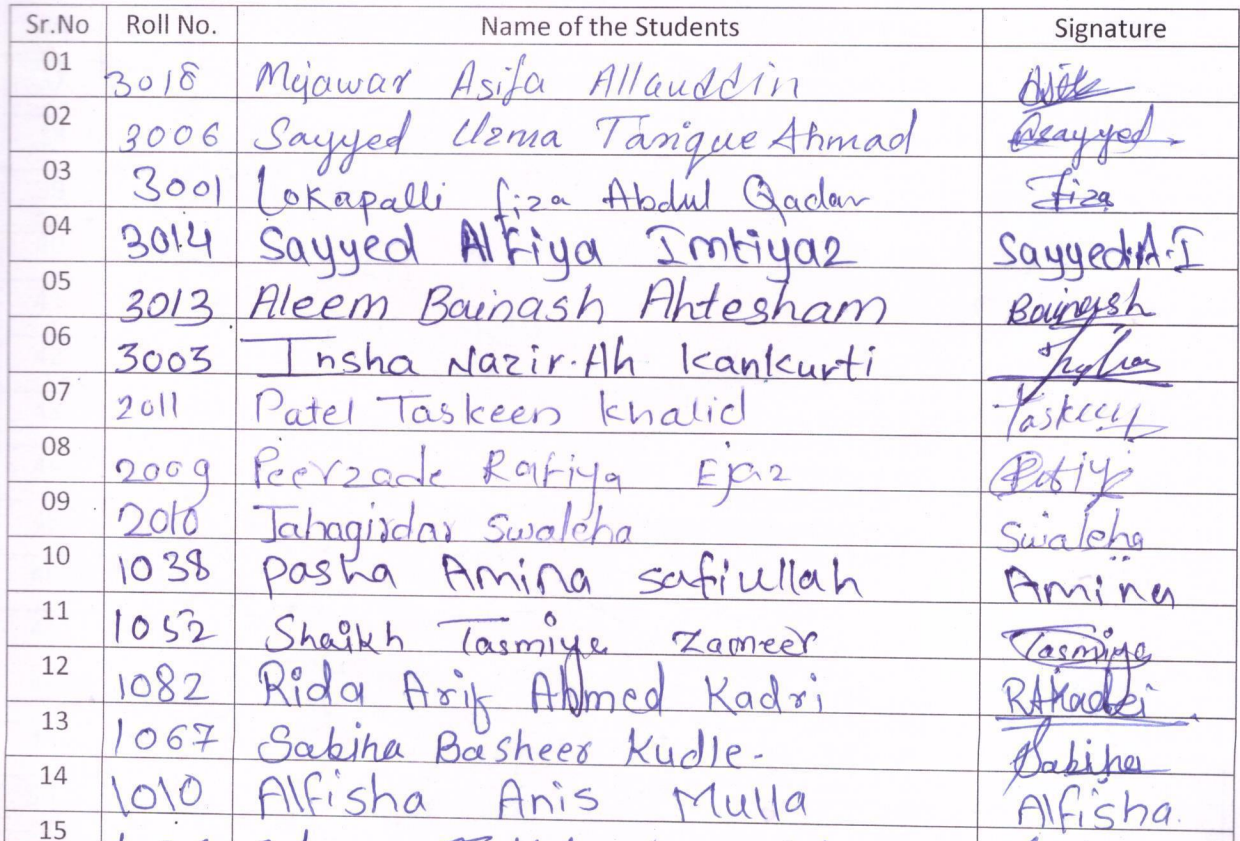 Sr.No Roll No. Name of the Students Signature
01 3018 Mujawar Asifa Allauddin
02 3006 Sayyed Uzma Tarique Ahmad
03 3001 Lokapalli fiza Abdul Qadar Fiza
04 3014 Sayyed Alfiya Imtiyaz Sayyed.A.I
05 3013 Aleem Bainash Ahtesham Bainash
06 3003 Insha Nazir.Ah Kankurti
07 2011 Patel Taskeen Khalid Taskeen
08 2009 Peerzade Rafiya Ejaz
09 2010 Jahagirdar Swaleha Swaleha
10 1038 Pasha Amina Safiullah Amina
11 1052 Shaikh Tasmiya Zameer Tasmiya
12 1082 Rida Arif Ahmed Kadri RAKadri
13 1067 Sabiha Basheer Kudle- Sabiha
14 1010 Alfisha Anis Mulla Alfisha.
15